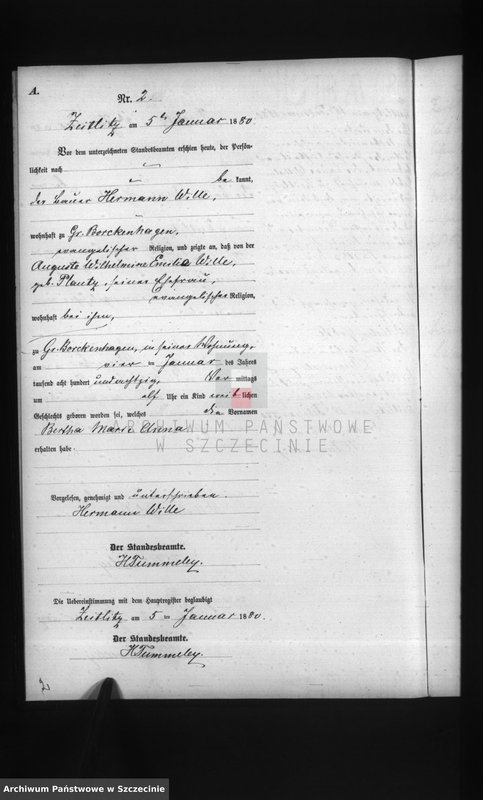 A.
Nr. 2.
Zeitlitz am 5ten Januar 1880
Vor dem unterzeichneten Standesbeamten erschien heute, der Persön-
lichkeit nach
bekannt,
der Bauer Hermann Wille,
wohnhaft zu Gr. Borckenhagen,
evangelischer Religion, und zeigte an, daß von der
Auguste Wilhelmine Emilie Wille,
geb. Plautz, seiner Ehefrau,
evangelischer Religion,
wohnhaft bei ihm,
zu Gr. Borckenhagen, in seiner Wohnung,
am vier ten Januar des Jahres
tausend acht hundert undachtzig, Vor mittags
um elf Uhr ein Kind weiblichen
Geschlechts geboren worden sei, welches die Vornamen
Bertha Marie Anna
erhalten habe.
ARCHIWUM PAŃSTWOWE
W SZCZECINIE
Vorgelesen, genehmigt und unterschrieben.
Hermann Wille
Der Standesbeamte.
H Tummeley.
Die Uebereinstimmung mit dem Hauptregister beglaubigt
Zeitlitz am 5ten Januar 1880.
Der Standesbeamte.
H Tummeley.
2
Archiwum Państwowe w Szczecinie